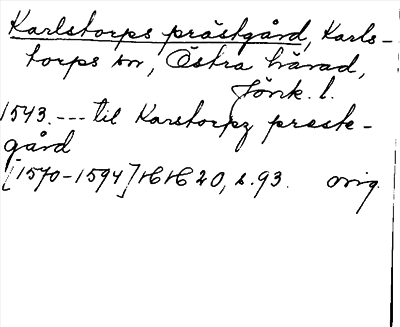 Karlstorps prästgård, Karls-
torps sn, Östra härad,
Jönk. l.
1543. --- til Karstorpz preste-
gård
[1570-1594] HH 20, s. 93. orig.